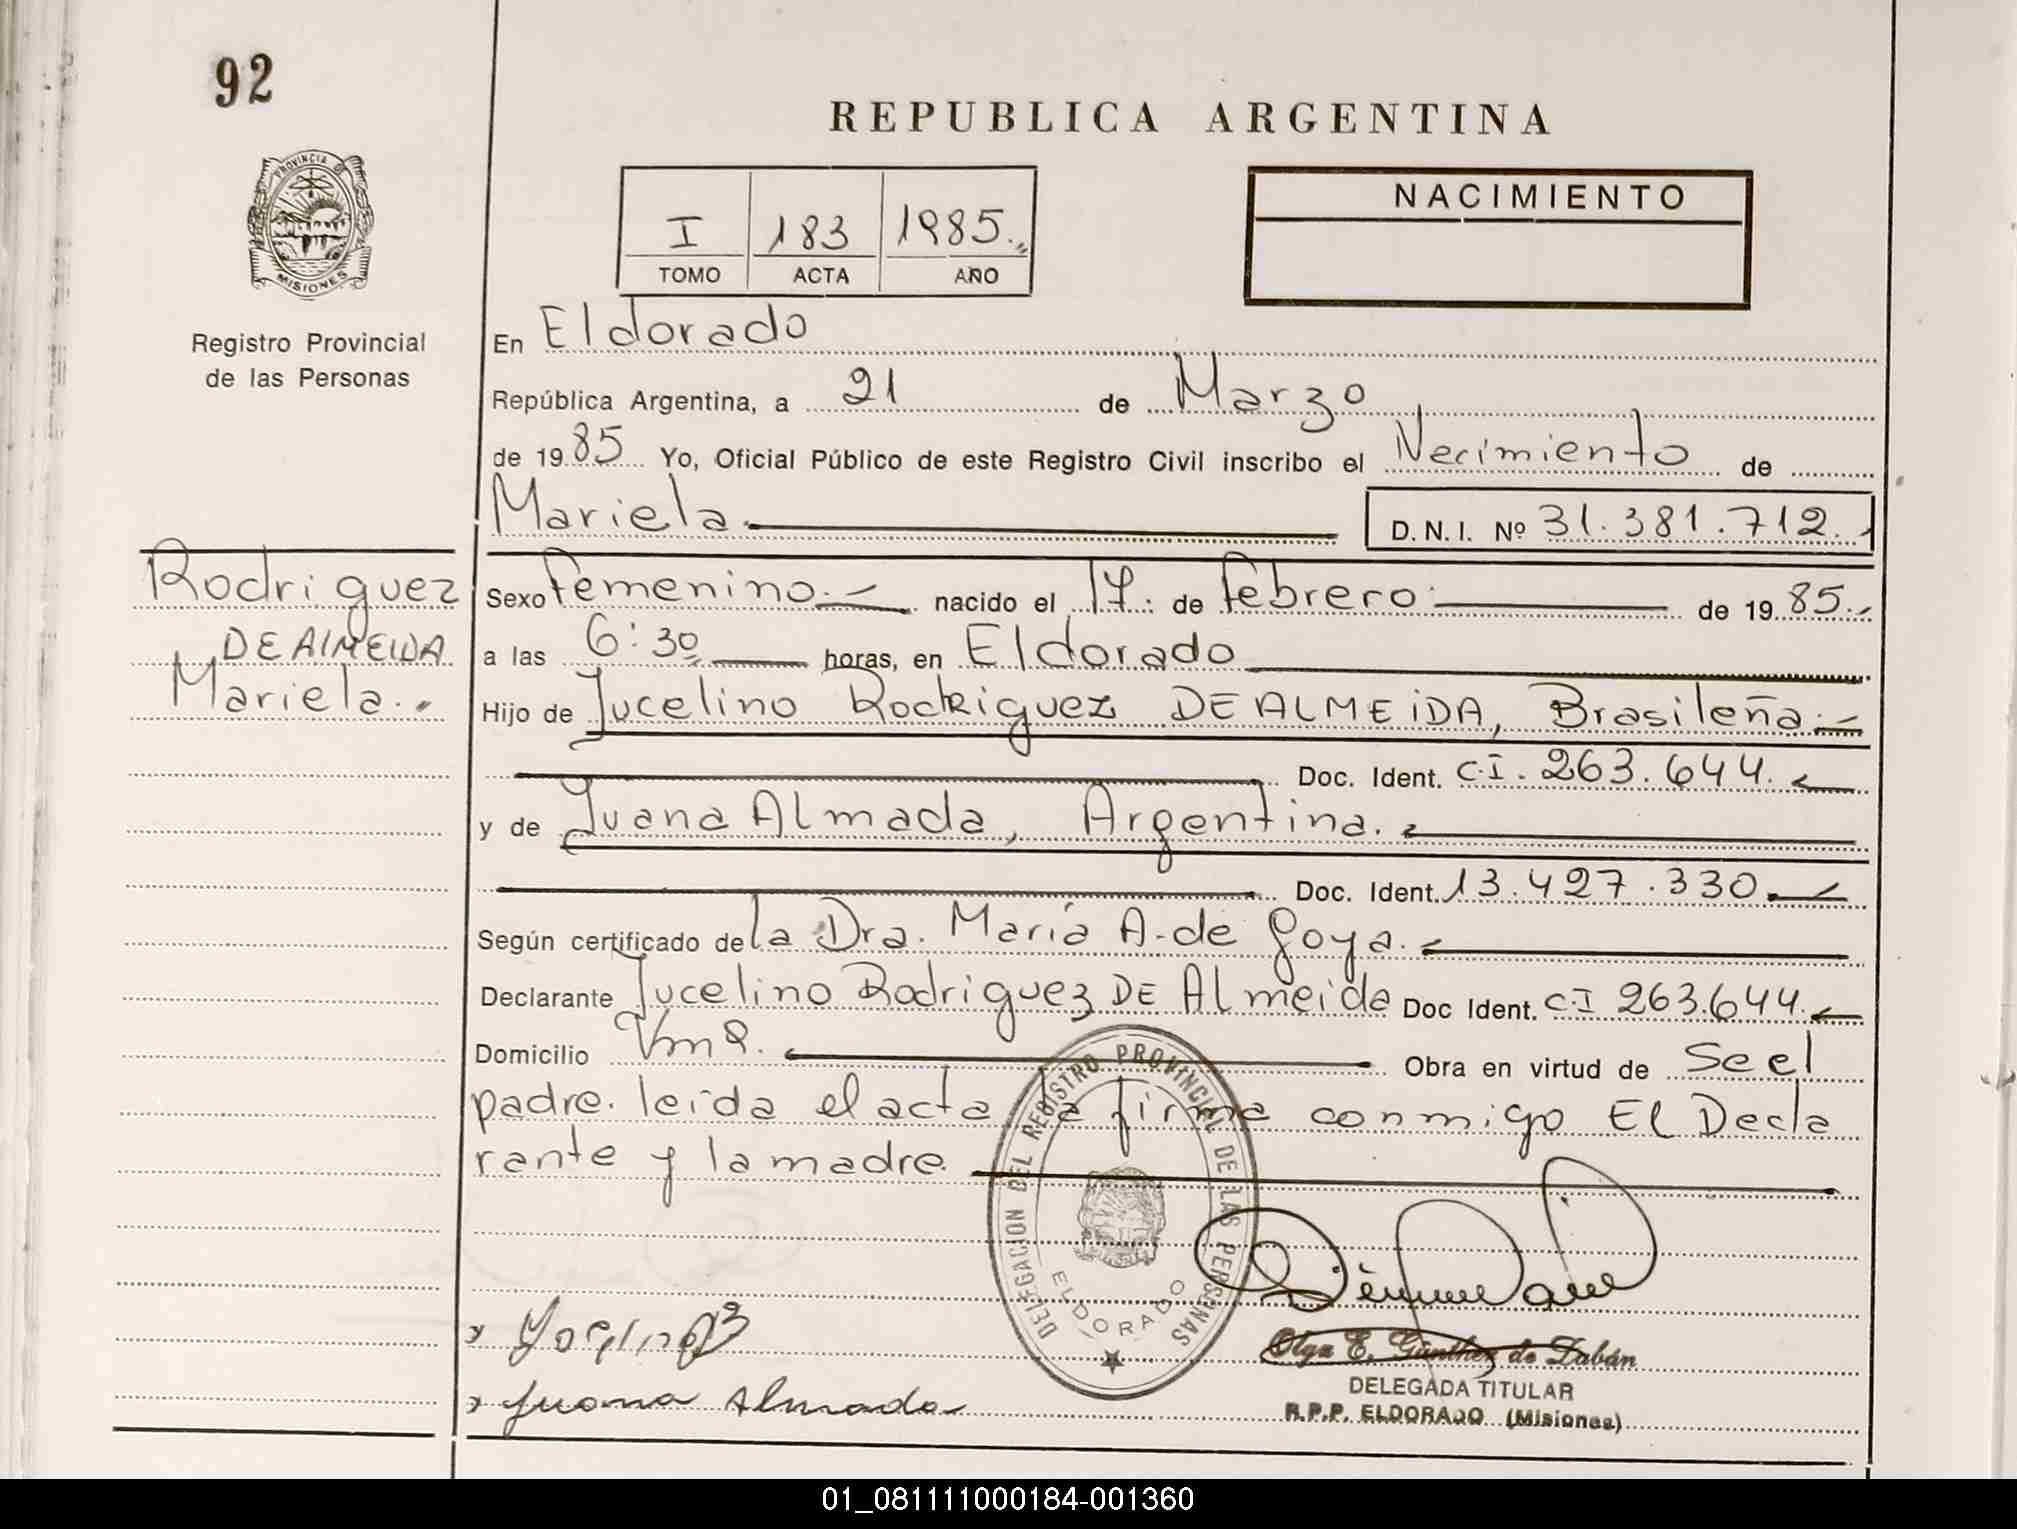 92
PROVINCIA DE
MISIONES
Registro Provincial
de las Personas
REPUBLICA ARGENTINA
I 183 1985.
TOMO ACTA AÑO
NACIMIENTO
En Eldorado
República Argentina, a 21 de Marzo
de 1985 Yo, Oficial Público de este Registro Civil inscribo el Necimiento de
Mariela. D.N.I. Nº 31.381.712.
Rodriguez
DE AlMEIDA
Mariela.
Sexo femenino. nacido el 17. de febrero de 1985.
a las 6:30 horas, en Eldorado
Hijo de Jucelino Rodriguez DE ALMEIDA, Brasileña.
Doc. Ident. C.I. 263.644.
y de Juana Almada, Argentina.
Doc. Ident. 13.427.330.
Según certificado de la Dra. María A. de Goya.
Declarante Jucelino Rodriguez DE Almeida Doc Ident. C.I 263.644.
Domicilio Obra en virtud de Se el
padre. leida el acta la firma conmigo El Decla
rante y la madre.
DELEGACION DEL REGISTRO PROVINCIAL DE LAS PERSONAS
ELDORADO
Juana Almada
Olga E. Günther de Zabán
DELEGADA TITULAR
R.P.P. ELDORADO (Misiones)
01_081111000184-001360